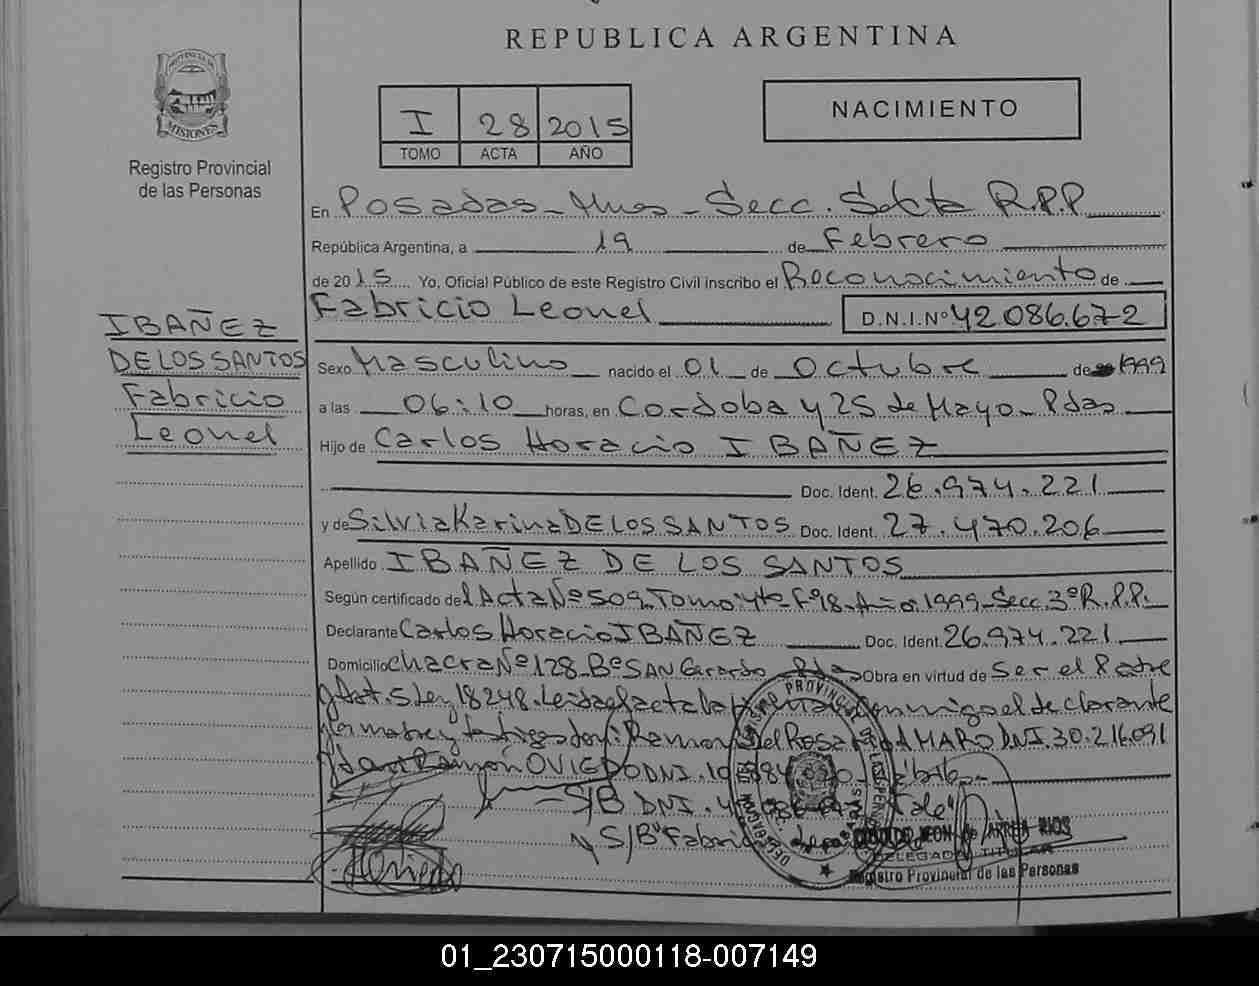 REPUBLICA ARGENTINA
PROVINCIA DE
MISIONES
Registro Provincial
de las Personas
I 28 2015
TOMO ACTA AÑO
NACIMIENTO
En Posadas - Mnes - Secc. Sexta R.P.P
República Argentina, a 19 de Febrero
de 2015 Yo, Oficial Público de este Registro Civil inscribo el Reconocimiento de
Fabricio Leonel D.N.I.Nº 42.086.672
IBAÑEZ
DE LOS SANTOS
Fabricio
Leonel
Sexo Masculino nacido el 01 de Octubre de 1999
a las 06:10 horas, en Cordoba y 25 de Mayo - Pdas
Hijo de Carlos Horacio IBAÑEZ
Doc. Ident. 26.974.221
y de Silvia Karina DE LOS SANTOS Doc. Ident. 27.470.206
Apellido IBAÑEZ DE LOS SANTOS
Según certificado del Acta Nº 509 - Tomo 4to - Fº 98 - Año 1999 - Secc. 3º R.P.P.
Declarante Carlos Horacio IBAÑEZ Doc. Ident. 26.974.221
Domicilio Chacra Nº 128 - Bº SAN Gerardo - Pdas Obra en virtud de Ser el Padre
y Art. 5 Ley 18248. Leida el acta la firman conmigo el declarante
la madre y testigos Ramon del Rosario AMARO DNI. 30.216.091
Ramón OVIEDO DNI.
S/B DNI. Vale"
y S/Bº Fabricio
DELEGADA TITULAR
Registro Provincial de las Personas
01_230715000118-007149